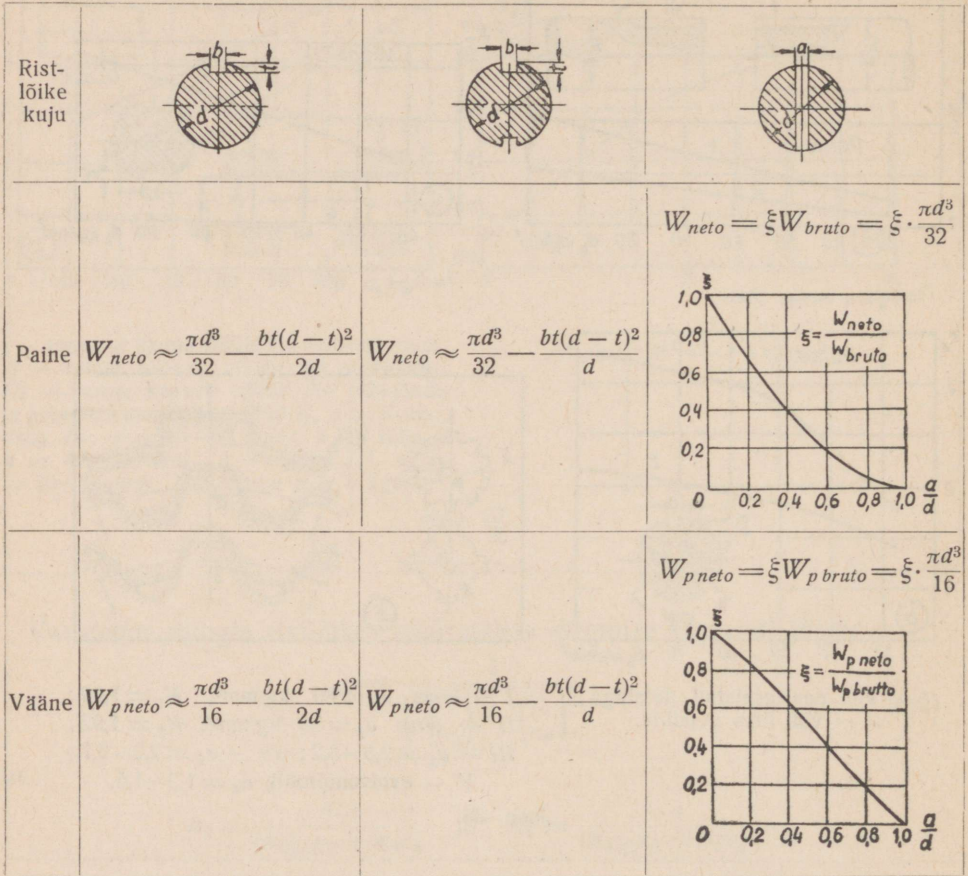 Rist-
lõike
kuju
b t d
b t d
a d
Paine
W_neto ≈ πd³/32 — bt(d — t)²/2d
W_neto ≈ πd³/32 — bt(d — t)²/d
W_neto = ξW_bruto = ξ · πd³/32
ξ
1,0
0,8
0,6
0,4
0,2
ξ = W_neto/W_bruto
0 0,2 0,4 0,6 0,8 1,0 a/d
Vääne
W_p neto ≈ πd³/16 — bt(d — t)²/2d
W_p neto ≈ πd³/16 — bt(d — t)²/d
W_p neto = ξW_p bruto = ξ · πd³/16
ξ
1,0
0,8
0,6
0,4
0,2
ξ = W_p neto/W_p brutto
0 0,2 0,4 0,6 0,8 1,0 a/d